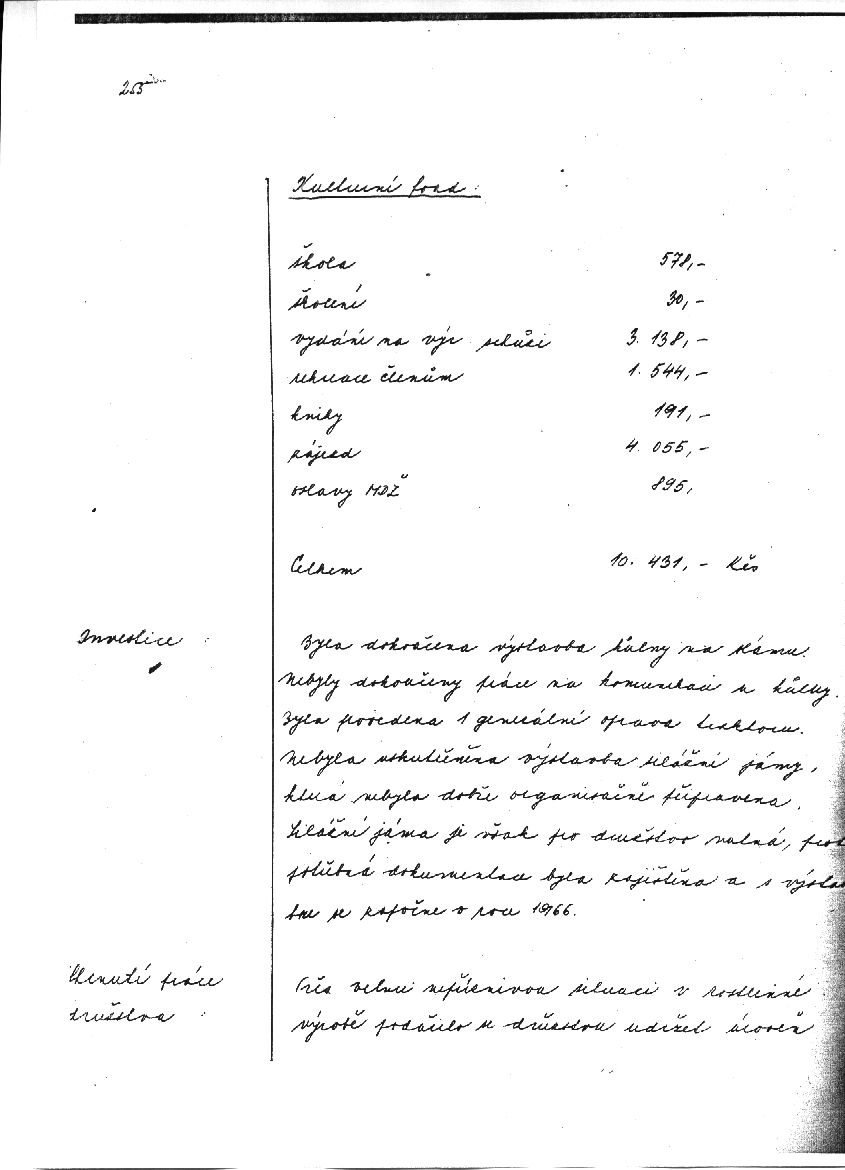 Kulturní fond:
škola 578,-
školení 30,-
vydání na výr. schůzi 3.138,-
rekreace členům 1.544,-
knihy 191,-
zájezd 4.055,-
oslavy MDŽ 895,
Celkem 10.431,- Kčs
Investice: Byla dokončena výstavba kůlny na slámu.
Nebyly dokončeny práce na komunikaci u kůlny.
Byla provedena 1 generální oprava traktoru.
Nebyla uskutečněna výstavba silážní jámy,
která nebyla dobře organisačně připravena.
Silážní jáma je však pro družstvo nutná, prot
potřebná dokumentace byla zajištěna a s výstav
bou se započne v roce 1966.
Hlenutí práce Přes velmi nepříznivou situaci v rostlinné
družstva: výrobě podařilo se družstvu udržet úroveň